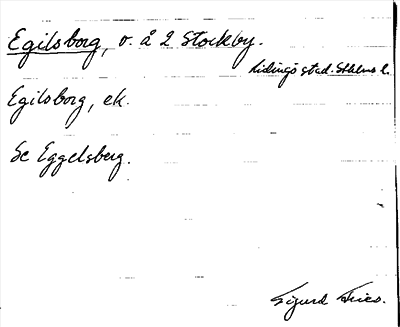 Egilsborg, o. å 2 Stockby.
Lidingö stad. Sthlms l.
Egilsborg, ek.
Se Eggelsberg.
Sigurd Fries.